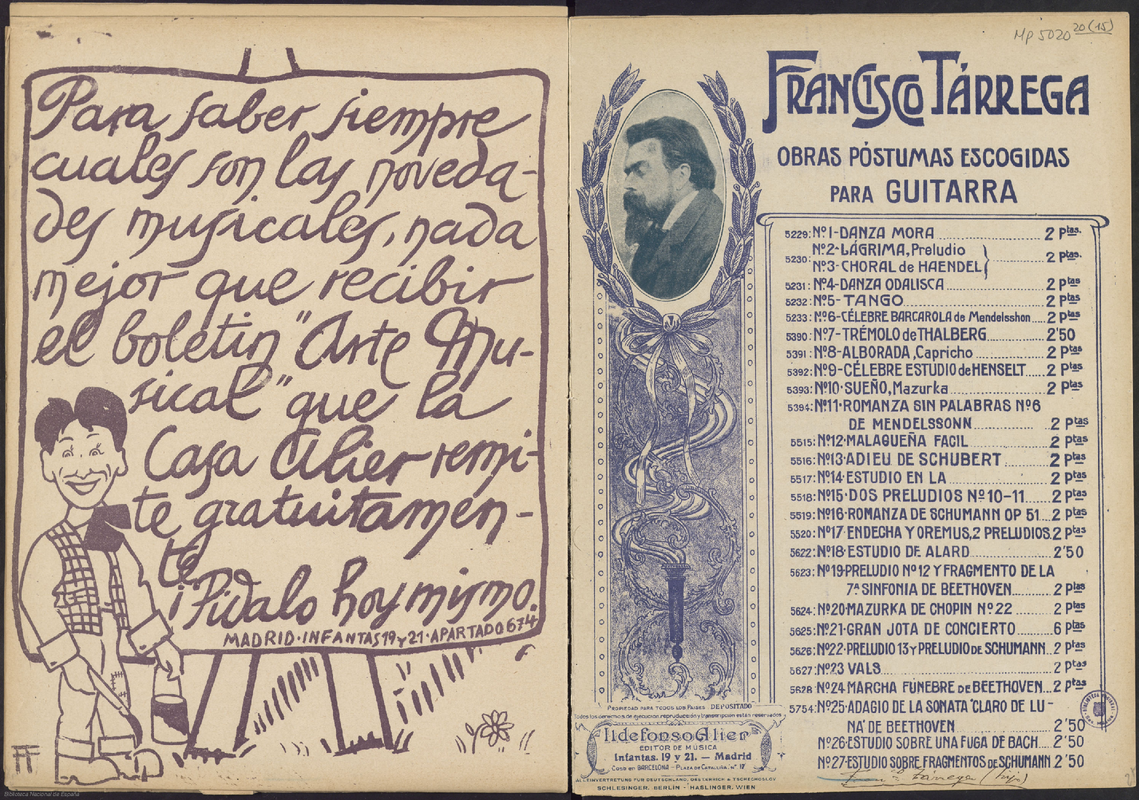 Para saber siempre
cuales son las noveda-
des musicales, nada
mejor que recibir
el boletin "Arte Mu-
sical" que la
Casa Alier remi-
te gratuitamen-
te
¡Pidalo hoy mismo.
MADRID·INFANTAS 19 y 21·APARTADO 674
Biblioteca Nacional de España
MP 5020 20(15)
FRANCISCO TÁRREGA
OBRAS PÓSTUMAS ESCOGIDAS
PARA GUITARRA
5229: Nº1-DANZA MORA 2 Ptas.
5230: Nº2-LÁGRIMA, Preludio
Nº3-CHORAL de HAENDEL } 2 Ptas.
5231: Nº4-DANZA ODALISCA 2 Ptas
5232: Nº5-TANGO 2 Ptas
5233: Nº6-CÉLEBRE BARCAROLA de Mendelsshon 2 Ptas
5390: Nº7-TRÉMOLO de THALBERG 2'50
5391: Nº8-ALBORADA, Capricho 2 Ptas
5392: Nº9-CÉLEBRE ESTUDIO de HENSELT 2 Ptas
5393: Nº10-SUEÑO, Mazurka 2 Ptas
5394: Nº11·ROMANZA SIN PALABRAS Nº6
DE MENDELSSONN 2 ptas
5515: Nº12·MALAGUEÑA FACIL 2 Ptas
5516: Nº13·ADIEU DE SCHUBERT 2 Ptas
5517: Nº14·ESTUDIO EN LA 2 Ptas
5518: Nº15·DOS PRELUDIOS Nº10-11 2 Ptas
5519: Nº16·ROMANZA DE SCHUMANN OP 51 2 Ptas
5520: Nº17·ENDECHA Y OREMUS, 2 PRELUDIOS. 2 Ptas
5622: Nº18·ESTUDIO DE ALARD 2'50
5623: Nº19·PRELUDIO Nº12 Y FRAGMENTO DE LA
7ª SINFONIA DE BEETHOVEN 2 ptas
5624: Nº20·MAZURKA DE CHOPIN Nº22 2 Ptas
5625: Nº21·GRAN JOTA DE CONCIERTO 6 Ptas
5626: Nº22·PRELUDIO 13 Y PRELUDIO DE SCHUMANN 2 ptas
5627: Nº23 VALS 2 ptas
5628 Nº24·MARCHA FÚNEBRE DE BEETHOVEN 2 Ptas
5754: Nº25·ADAGIO DE LA SONATA "CLARO DE LU-
NA" DE BEETHOVEN 2'50
Nº26·ESTUDIO SOBRE UNA FUGA DE BACH 2'50
Nº27·ESTUDIO SOBRE FRAGMENTOS DE SCHUMANN 2'50
Tárrega (hijo)
PROPIEDAD PARA TODOS LOS PAISES · DEPOSITADO
Todos los derechos de ejecución, reproducción y transcripción están reservados
Ildefonso Alier
EDITOR DE MÚSICA
Infantas, 19 y 21. — Madrid
Casa en BARCELONA - PLAZA DE CATALUÑA, Nº 17
ALLEINVERTRETUNG FUR DEUTSCHLAND, OESTERREICH & TSCHECHOSLOV
SCHLESINGER, BERLIN - HASLINGER, WIEN